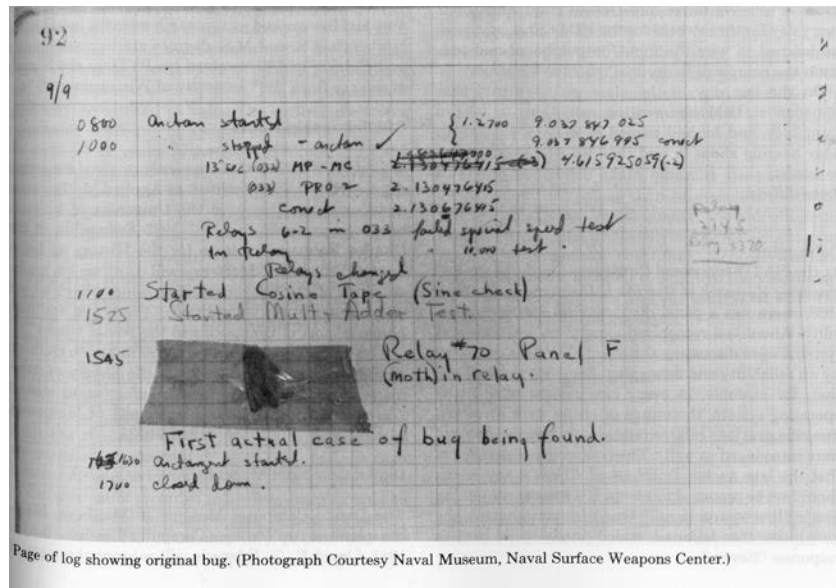 92
9/9
0800 Antan started { 1.2700 9.037 847 025
1000 " stopped - antan ✓ 9.037 846 995 conect
13"uc (032) MP - MC 2.130476415 (-3) 4.615925059(-2)
(033) PRO 2 2.130476415
conect 2.130676415
Relays 6-2 in 033 failed special speed test
In Relay " 10,000 test .
Relay
2145
Relay 3370
Relays changed
1100 Started Cosine Tape (Sine check)
1525 Started Mult + Adder Test.
1545 Relay #70 Panel F
(moth) in relay.
First actual case of bug being found.
1630 arctangent started.
1700 closed down .
Page of log showing original bug. (Photograph Courtesy Naval Museum, Naval Surface Weapons Center.)